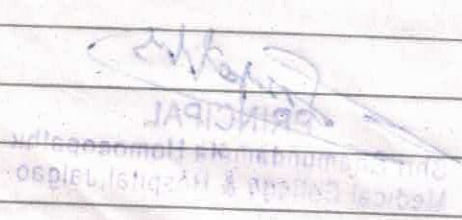 PRINCIPAL
Shri Chamundamata Homoeopathic
Medical College & Hospital, Jalgao